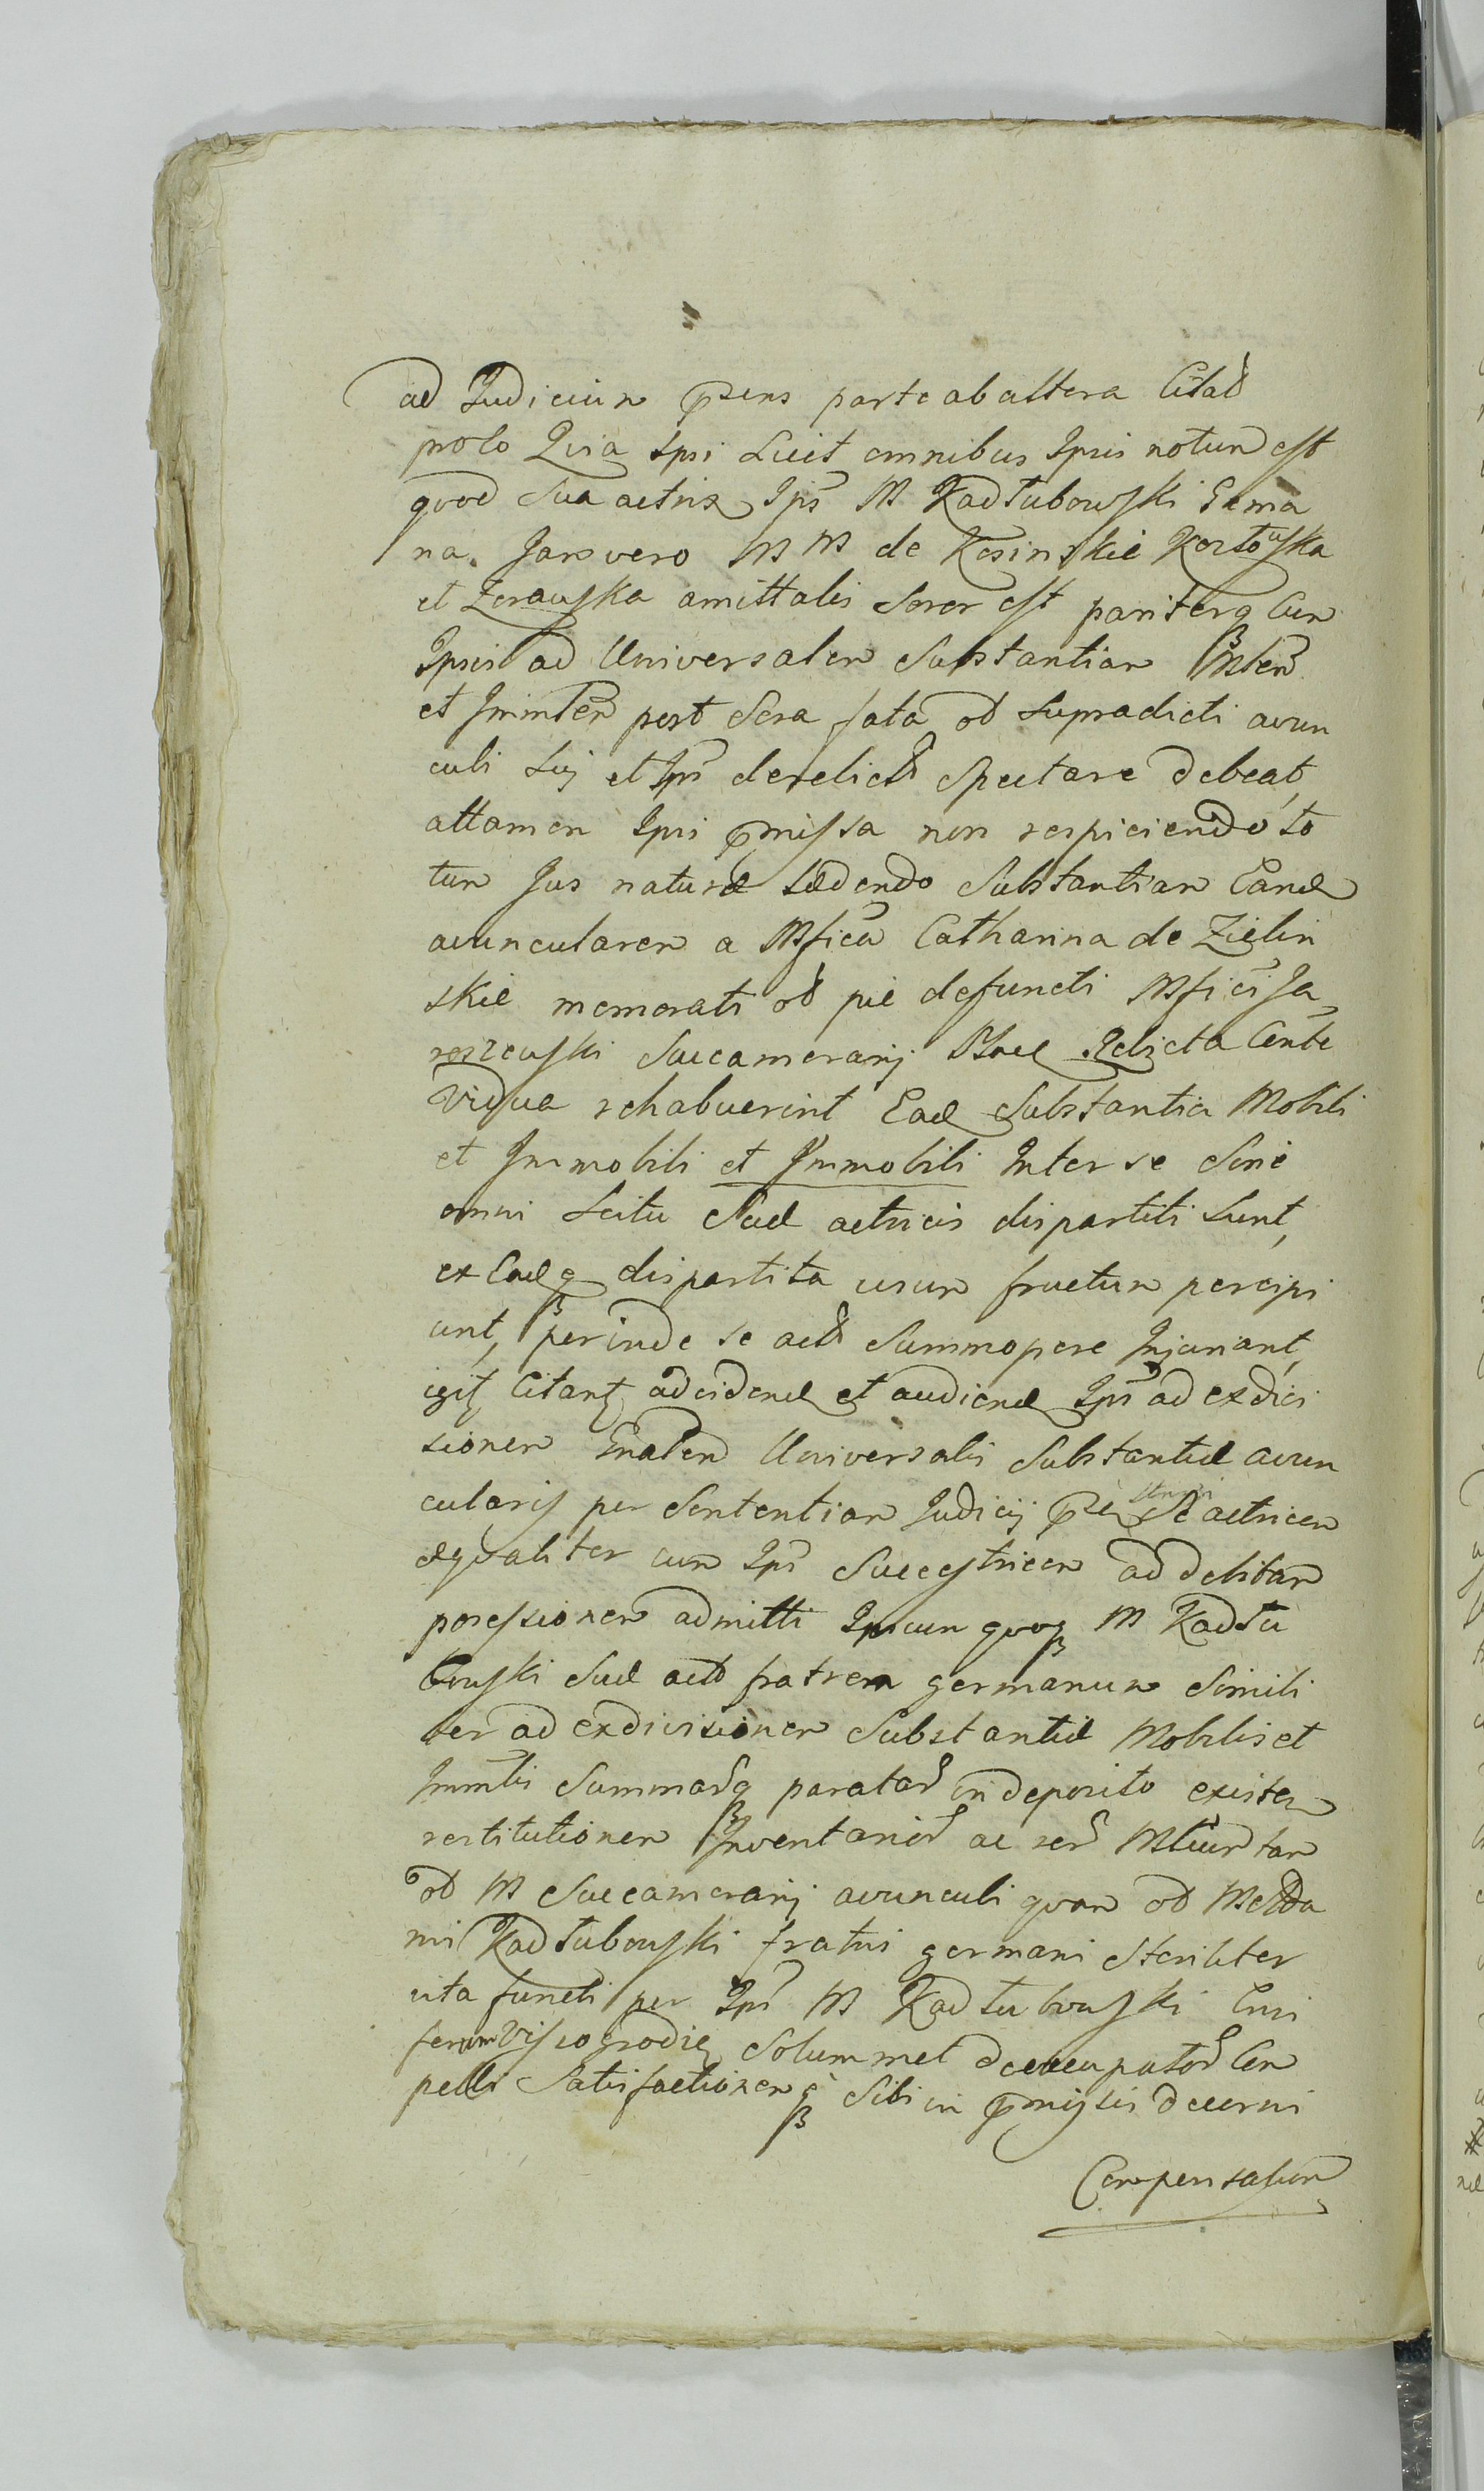 ad Judicium pñsens parte ab altera Citat
prolo Quia Ipsi Licet omnibus Ipsis notum est
quod Sua actrix Ipsi M Kadłubowski Germa
na. Jam vero M M de Kosinskie Kozłowska
et Zerawska amittalis Soror est pariterq Cum
Ipsis ad Universalem Substantiam Mblem
et Immblem post Sera fata od supradicti avun
culi sui et Ipsi derelict Spectare debeat,
attamen Ipsi pmissa non respiciendo to
tum Jus naturæ Lædendo Substantiam Eand
avuncularem a Mfica Catharina de Zielin
skie memorati od pie defuncti Mfici Ja
roszewski Succamerarij Relicta
Vidua rehabuerint Ead Substantia Mobili
et Immobili et Immobili Inter se Sine
omni Scitu Suæ actricis dispartiti sunt,
ex Eadq dispartita usum fructum percipi
unt, perinde se act Summopere Injuriant,
igit Citant ad videnđ et audienđ Ipsi ad exdivi
sionem Universalis Substantiæ avun
cularis per Sententiam Judicij Se actricem
æqualiter cum Ipsi Succestricem ad debitam
possessionem admitti Ipsum quoq M Kadłu
bowski Suæ act fratrem germanum Simili
ter ad exdivisionem Substantiæ Mobilis et
Immblis Summarq paratar in deposito existen
restitutionem Inventarior ac rer tam
od M Succamerarij avunculi quam od M Ada
mi Kadłubowski fratris germani Steriliter
vita functi per Ipsi M Kadłubowski
Wiszogrodien Solummet deoccupator Com
pelli Satisfactionemq Sibi in pmissis decerni
Compensation